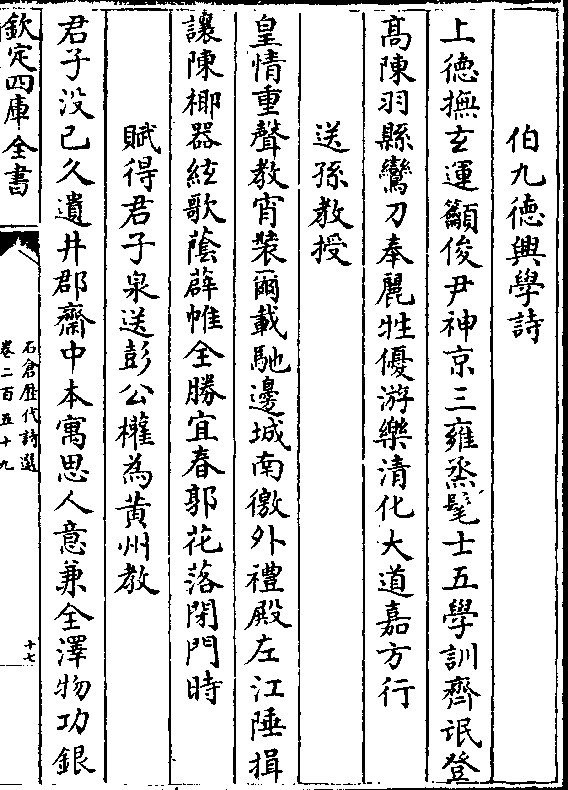 伯九德興學詩
上徳撫𤣥運籲俊尹神京三雍烝髦士五學訓齊氓登
髙陳羽縣鸞刀奉麗牲優游樂清化大道嘉方行
送孫教授
皇情重聲教宵裝爾載馳邊城南徼外禮殿左江陲揖
讓陳椰器絃歌䕃薜帷全勝宜春郭花落閉門時
賦得君子泉送彭公權為黄州教
君子没已久遺井郡齋中本寓思人意兼全澤物功銀
欽定四庫全書
石倉歴代詩選
卷二百五十九
十七